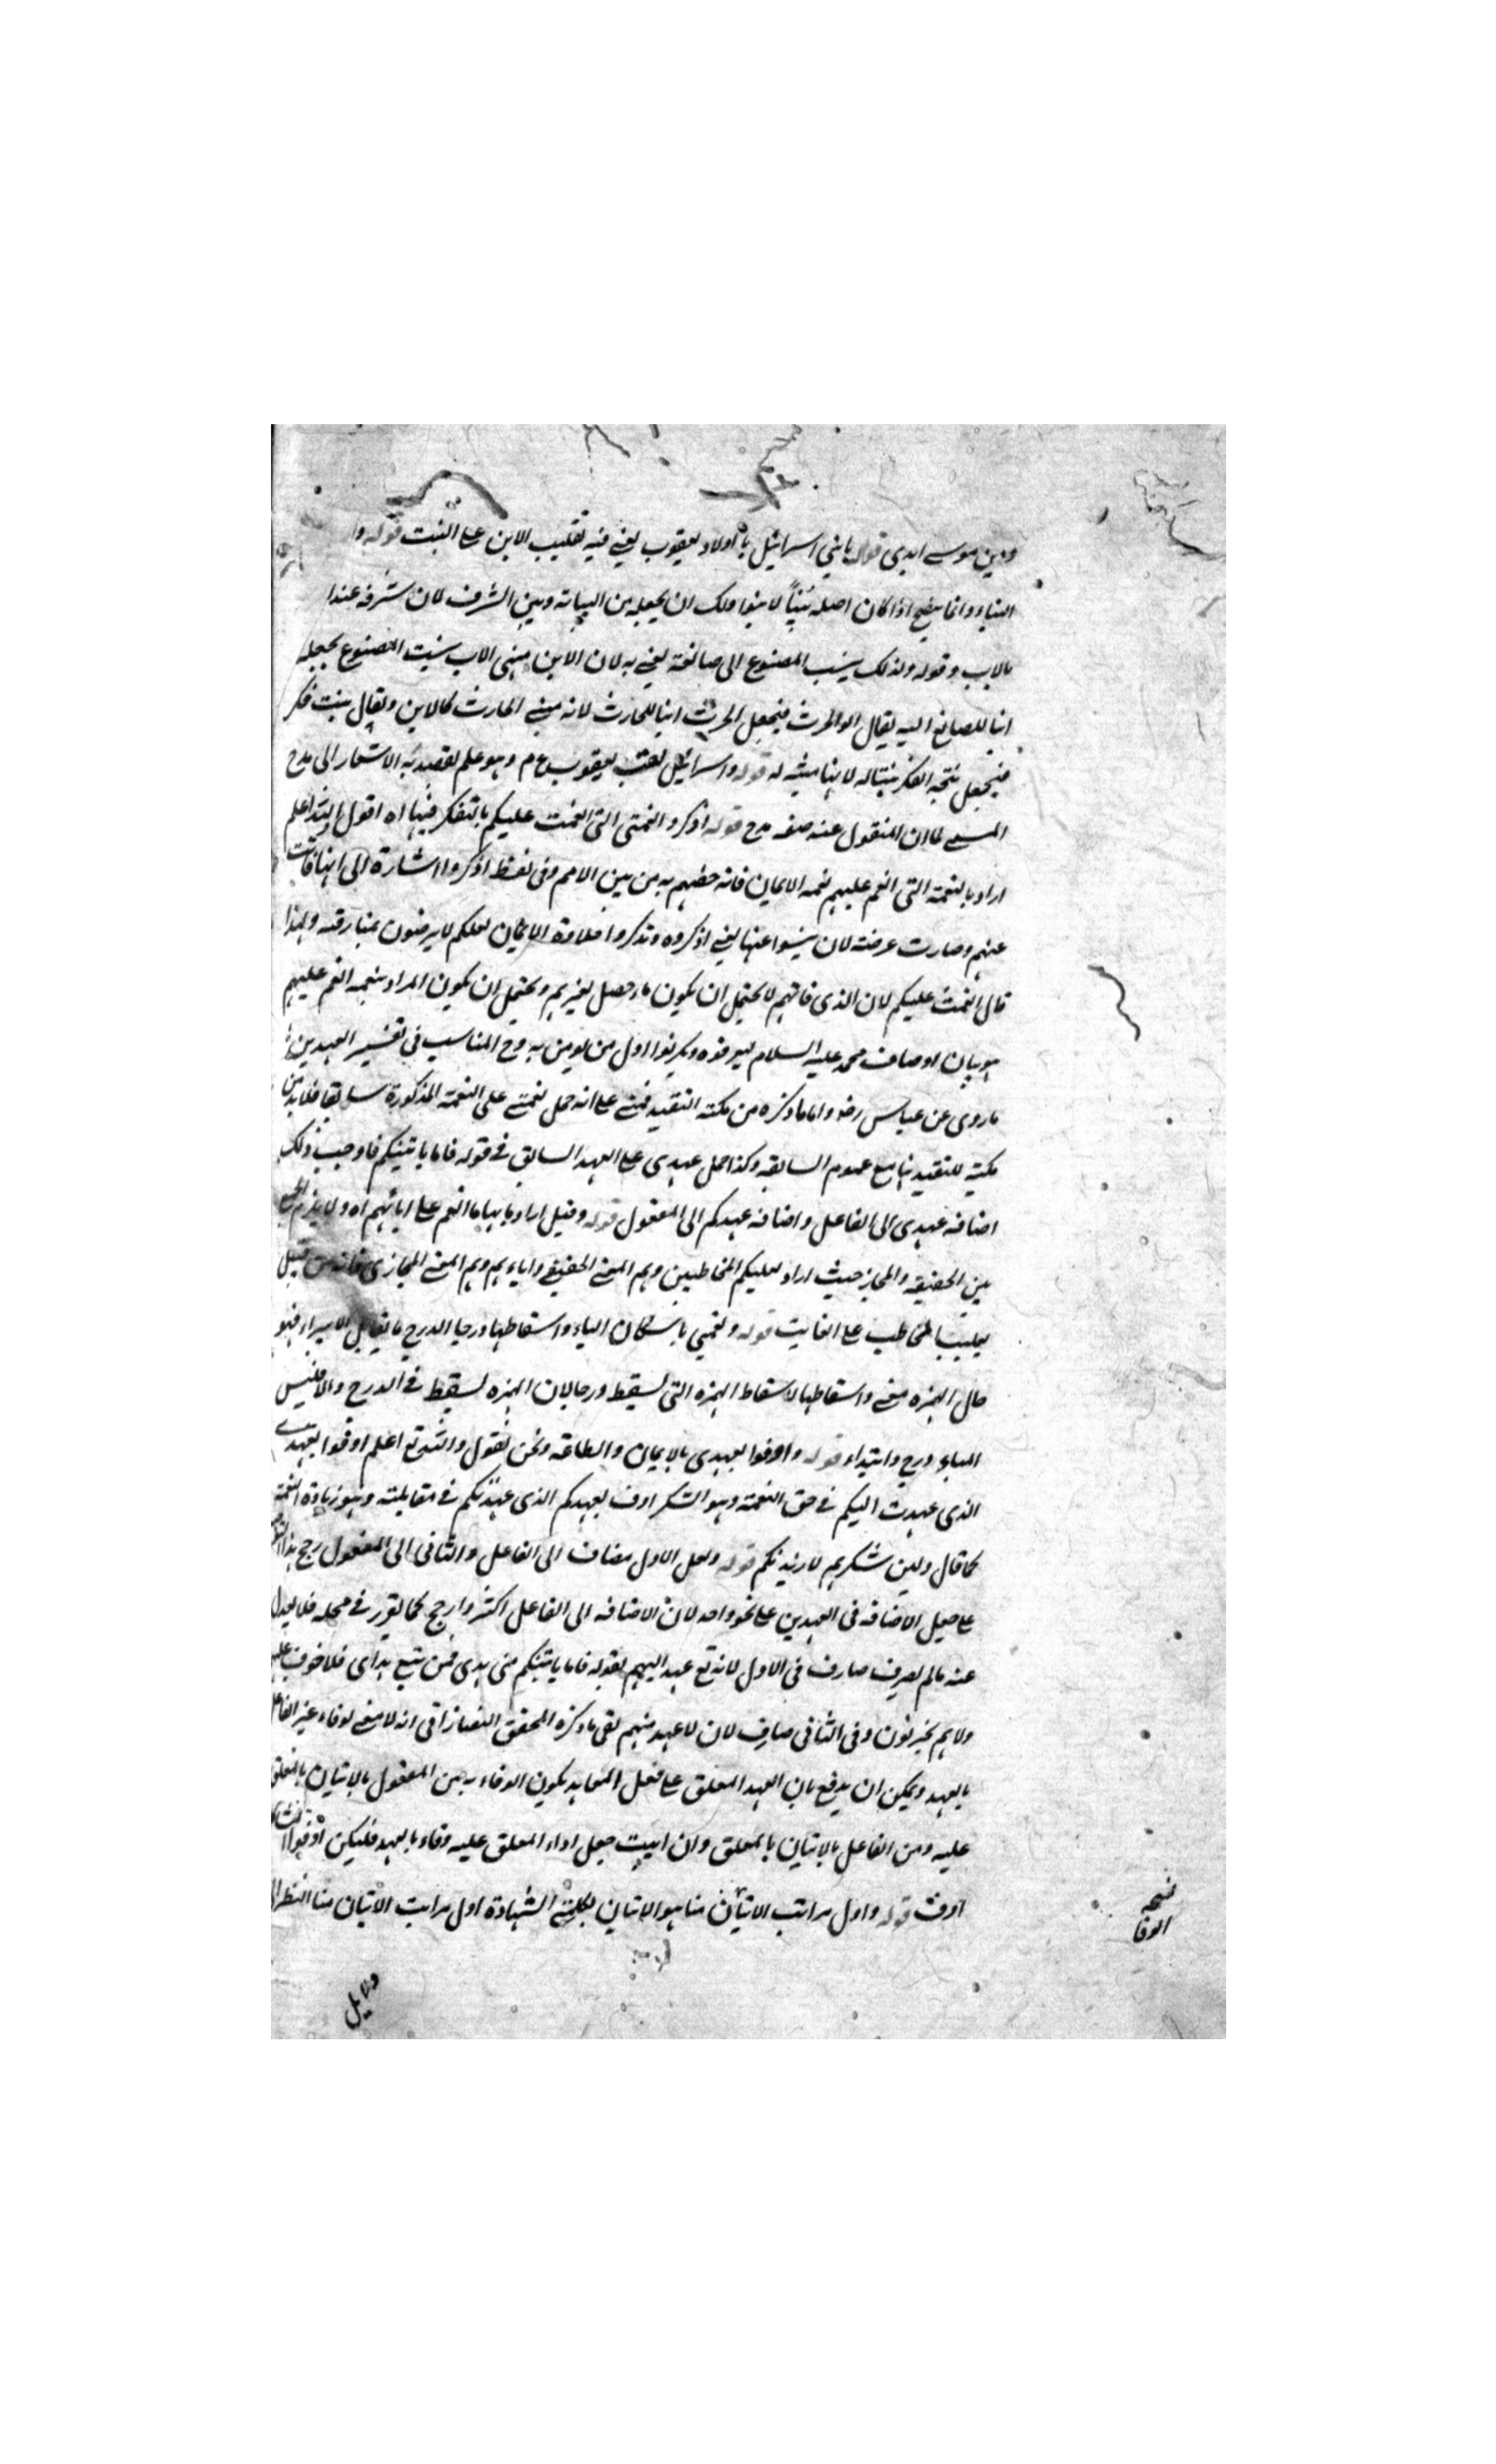 ودين موسى ابدى قوله يا بني اسرائيل يا اولاد يعقوب يعني فيه تغليب الابن على البنت قوله وا
البناء وانما يصح اذا كان اصله بنياً لا بنوا ولك ان يجعله من البيانه وبين الشرف لان شرفه عندا
بالاب وقوله ولذلك ينسب المصنوع الى صانعه يعني به لان الابن مبني الاب ينسب المصنوع بجعله
ابنا للصانع اليه يقال ابو الحرث فيجعل الحرث ابنا للحارث لانه مبني الحارث كالابن ويقال بنت فكر
فيجعل نتيجة الفكر بنتا له لانها مبنية له قوله واسرائيل لقب يعقوب ع م وهو علم يقصد به الاشعار الى مدح
المسمى لما ان المنقول عنه صفه مدح قوله اذكروا نعمتي التي انعمت عليكم بالتفكر فيها اه اقول والله اعلم
اراد بالنعمة التي انعم عليهم نعمه الايمان فانه خصهم به من بين الامم وفي لفظ اذكروا اشارة الى انها فاتت
عنهم وصارت عرضة لان ينسوا عنها يعني اذكروه وتذكروا حلاوة الايمان لعلكم لا يرضون بمفارقته ولهذا
قال انعمت عليكم لان الذي فاتهم لا يحتمل ان يكون ما حصل لغيرهم ويحتمل ان يكون المراد بنعمه انعم عليهم
هو بيان اوصاف محمد عليه السلام ليعرفوه ويكونوا اول من يؤمن به وح المناسب في تفسير العهدين
ما روى عن عباس رض واما ما ذكره من نكتة التقييد فمبني على انه حمل نعمتي على النعمة المذكورة سابقا فلا بد من
نكتة للتقييد بها مع عموم السابقه وكذا حمل عهدي على العهد السابق في قوله فاما ياتينكم فاوجب ذلك
اضافه عهدي الى الفاعل واضافه عهدكم الى المفعول قوله وقيل اراد بها ما انعم على ابائهم اه ولا يلزم الجمع
بين الحقيقه والمجاز حيث اراد بعليكم المخاطبين وهم المعنى الحقيقي واباءهم وهم المعنى المجازي فانه من قبيل
تغليب المخاطب على الغايب قوله ونعمتي باسكان الياء واسقاطها درجا الدرج ما يقابل الابتداء فهو
حال الهمزه معنى واسقاطها لاسقاط الهمزه التي لسقط درجا لان الهمزه لسقط في الدرج والا فليس
الياء درج وابتداء قوله واوفوا بعهدي بالايمان والطاعة ونحن نقول والله تع اعلم اوفوا بعهدي
الذي عهدت اليكم في حق النعمة وهو الشكر اوف بعهدكم الذي عهدتكم في مقابلته وهو زيادة النعمة
كما قال ولئن شكرتم لازيدنكم قوله ولعل الاول مضاف الى الفاعل والثاني الى المفعول رجح هذا
على جعل الاضافه في العهدين على نحو واحد لان الاضافه الى الفاعل اكثر وارجح كما تقرر في محله فلا يعدل
عنه ما لم يصرف صارف ففي الاول لانه تع عهد اليهم بقوله فاما ياتينكم مني هدى فمن تبع هداى فلا خوف عليهم
ولا هم يحزنون وفي الثاني صارف لان لا عهد منهم بقي ما ذكره المحقق التفتازاني انه لا معنى لوفاء غير الفاعل
بالعهد ويمكن ان يدفع بان العهد المعلق على فعل المعاهد يكون الوفاء به من المفعول بالاتيان بالمعلق
عليه ومن الفاعل بالاتيان بالمعلق وان ابيت جعل اداء المعلق عليه وفاء بالعهد فليكن اوفوا
اوف قوله واول مراتب الاتيان منا هو الاتيان بكلمتي الشهادة اول مراتب الاتيان منا النظر
نسخه
الوفا